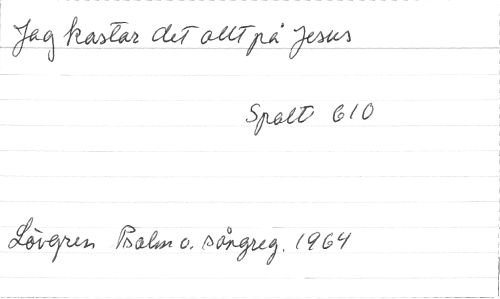 Jag kastar det allt på Jesus
Spalt 610
Lövgren Psalm o. sångreg. 1964